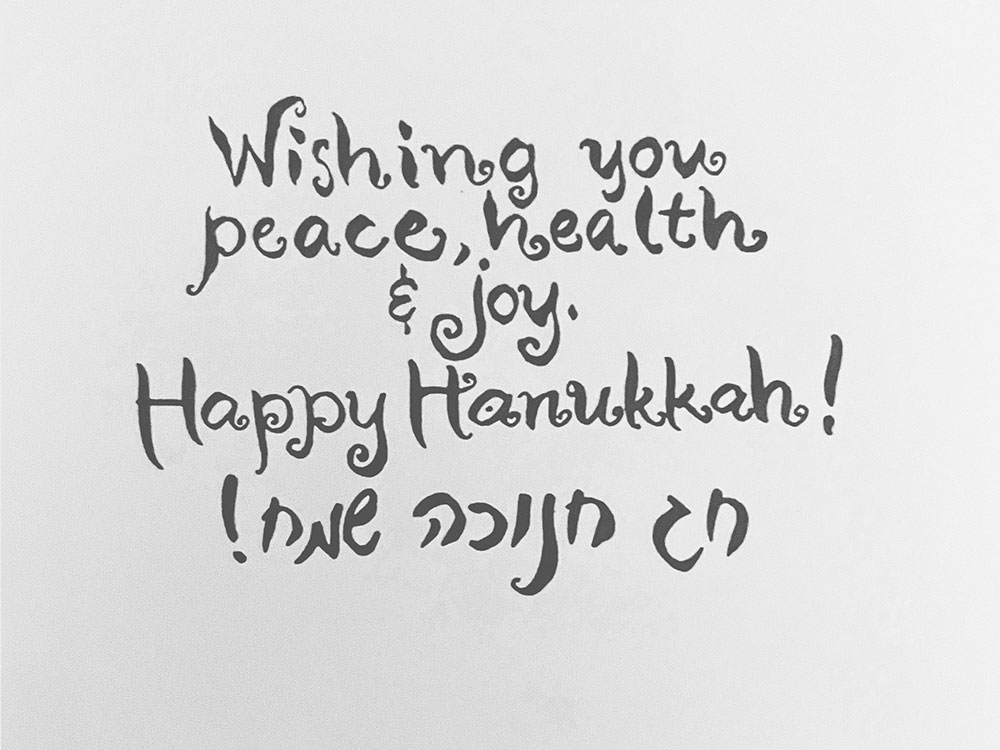 Wishing you
peace, health
& joy.
Happy Hanukkah!
חג חנוכה שמח!